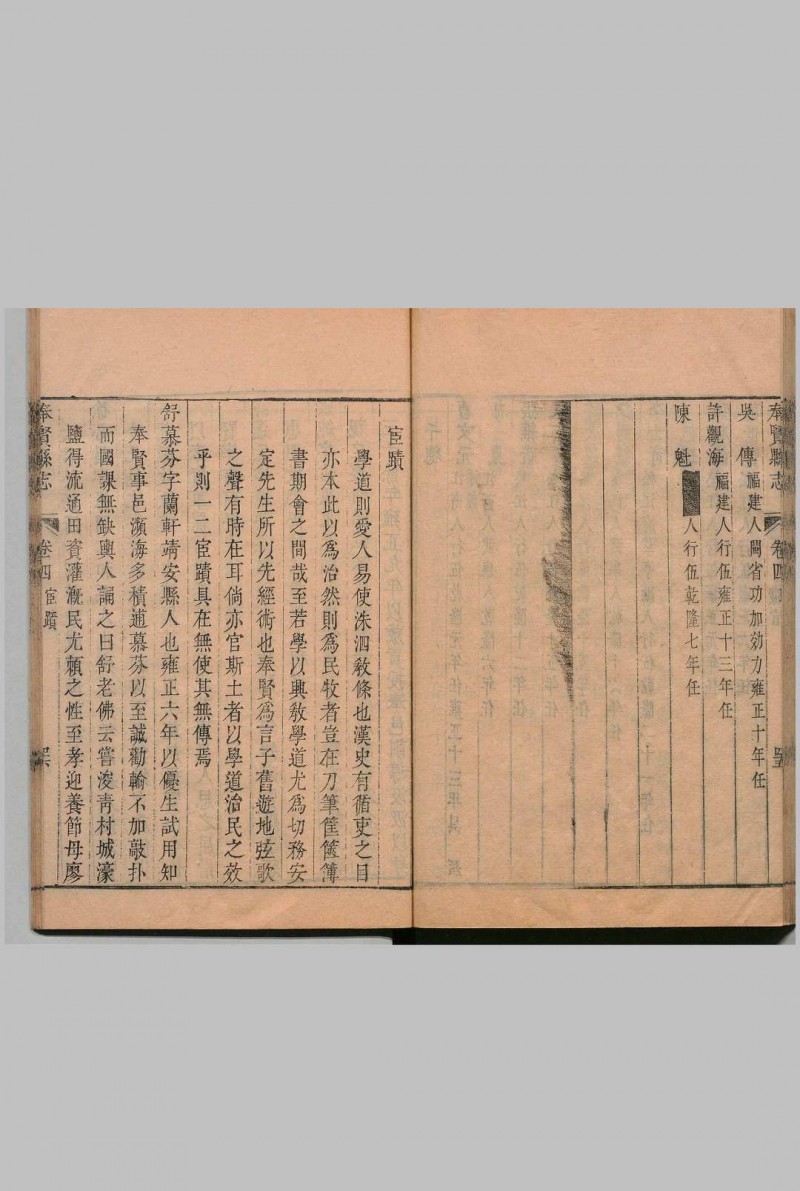 奉賢縣志 卷四
吳　傳 福建人閩省功加効力雍正十年任
許觀海 福建人行伍雍正十三年任
陳　魁 人行伍乾隆七年任
宦蹟
學道則愛人易使洙泗敎條也漢史有循吏之目
亦本此以爲治然則爲民牧者豈在刀筆筐篋簿
書期會之間哉至若學以興敎學道尤爲切務安
定先生所以先經術也奉賢爲言子舊遊地弦歌
之聲有時在耳倘亦官斯土者以學道治民之效
乎則一二宦蹟具在無使其無傳焉
舒慕芬字蘭軒靖安縣人也雍正六年以優生試用知
奉賢事邑瀕海多積逋慕芬以至誠勸輸不加敲扑
而國課無缺輿人誦之曰舒老佛云嘗浚靑村城濠
鹽得流通田資灌漑民尤賴之性至孝迎養節母廖
奉賢縣志 卷四 宦蹟